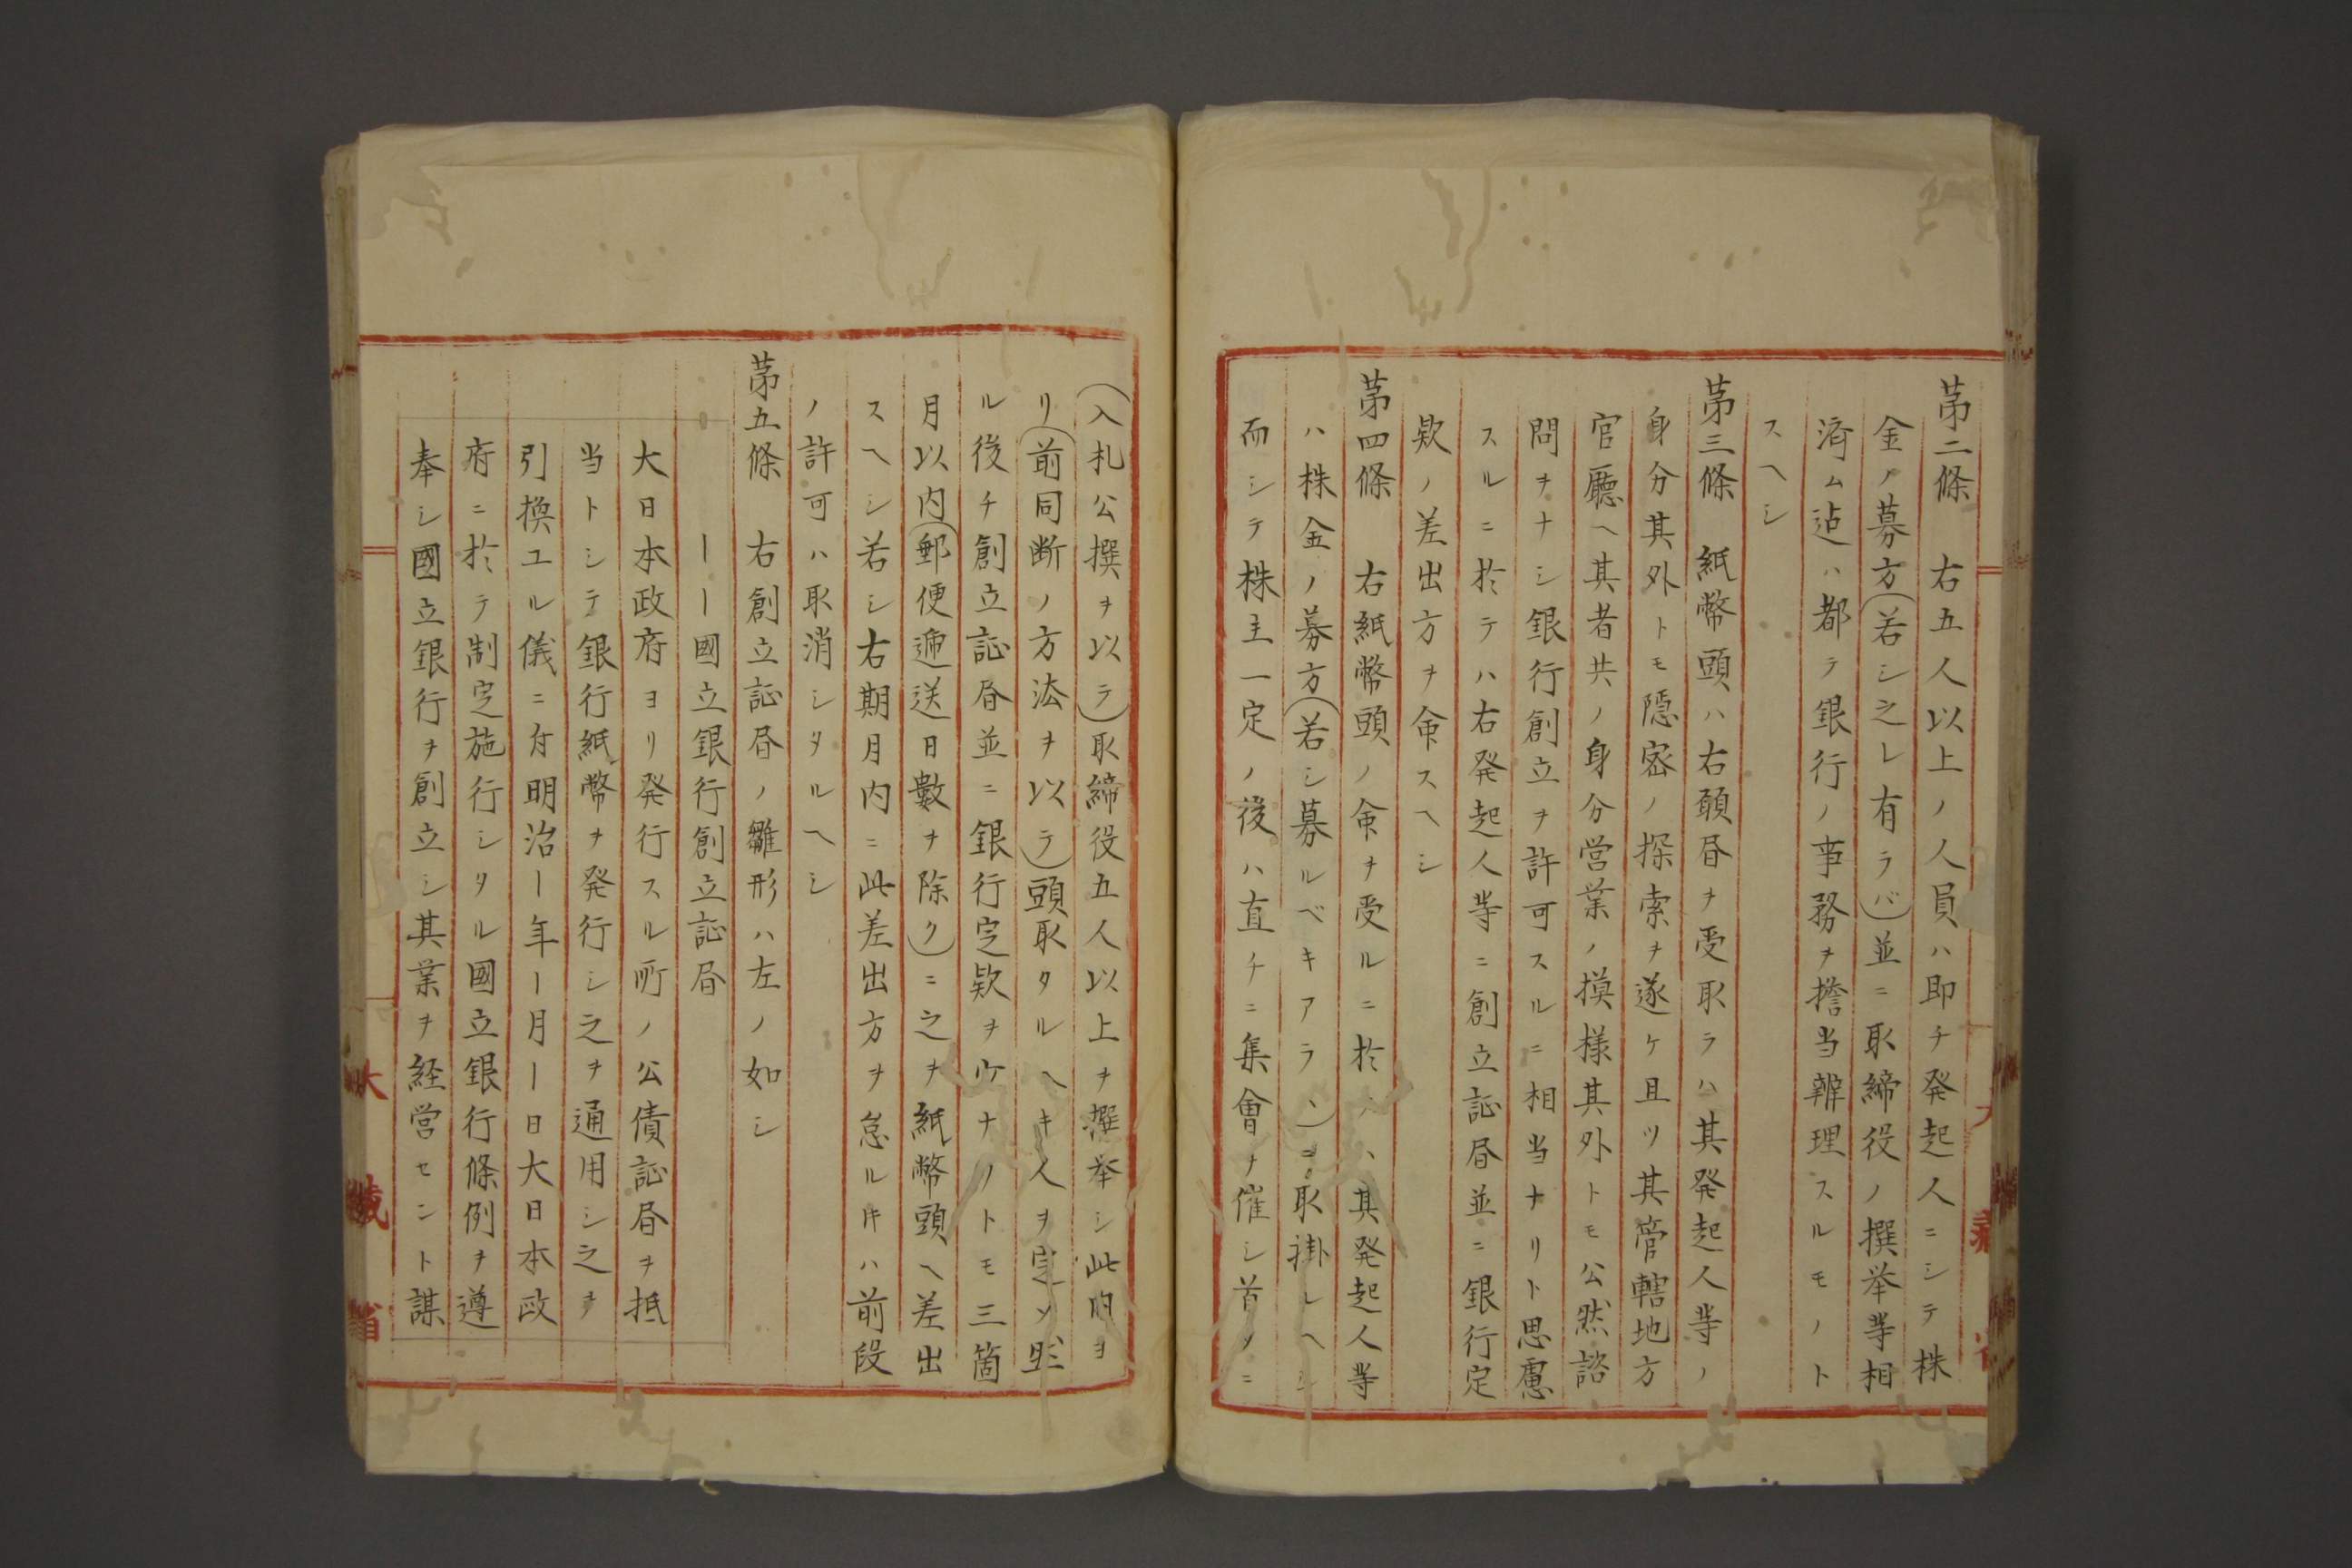 第二條　右五人以上ノ人員ハ即チ発起人ニシテ株
金ノ募方(若シ之レ有ラバ)並ニ取締役ノ撰挙等相
済ム迠ハ都テ銀行ノ事務ヲ擔当辨理スルモノト
スヘシ
第三條　紙幣頭ハ右願書ヲ受取ラハ其発起人等ノ
身分其外トモ隠密ノ探索ヲ遂ケ且ツ其管轄地方
官廳ヘ其者共ノ身分営業ノ摸様其外トモ公然諮
問ヲナシ銀行創立ヲ許可スルニ相当ナリト思慮
スルニ於テハ右発起人等ニ創立証書並ニ銀行定
欵ノ差出方ヲ命スヘシ
第四條　右紙幣頭ノ命ヲ受ルニ於ハ其発起人等
ハ株金ノ募方(若シ募ルベキアラハ)ニ取掛ルヘシ
而シテ株主一定ノ後ハ直チニ集會ヲ催シ首メニ
(入札公撰ヲ以テ)取締役五人以上ヲ撰挙シ此内ヨ
リ(前同断ノ方法ヲ以テ)頭取タルヘキ人ヲ定ソ然
ル後チ創立証書並ニ銀行定欵ヲ作ナノトモ三箇
月以内(郵便逓送日數ヲ除ク)ニ之ヲ紙幣頭ヘ差出
スヘシ若シ右期月内ニ此差出方ヲ怠ルトキハ前段
ノ許可ハ取消シタルヘシ
第五條　右創立証書ノ雛形ハ左ノ如シ
ーー國立銀行創立証書
大日本政府ヨリ発行スル所ノ公債証書ヲ抵
当トシテ銀行紙幣ヲ発行シ之ヲ通用シ之ヲ
引換ユル儀ニ付明治ー年ー月ー日大日本政
府ニ於テ制定施行シタル國立銀行條例ヲ遵
奉シ國立銀行ヲ創立シ其業ヲ経営セント謀
大藏省